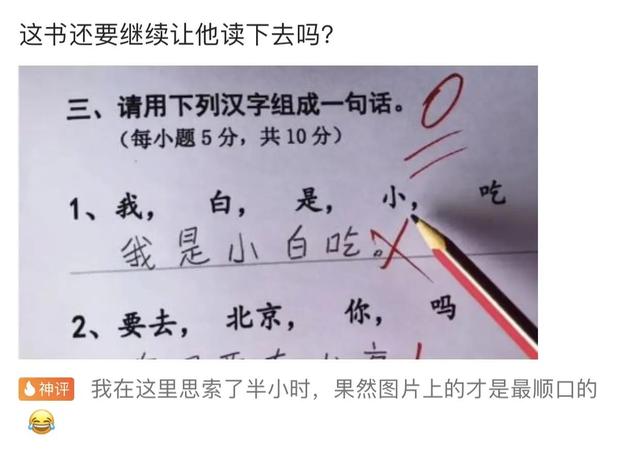 这书还要继续让他读下去吗?
三、请用下列汉字组成一句话。
0
（每小题5分，共10分）
1、我， 白， 是， 小， 吃
我是小白吃。
2、要去， 北京， 你， 吗
神评 我在这里思索了半小时，果然图片上的才是最顺口的